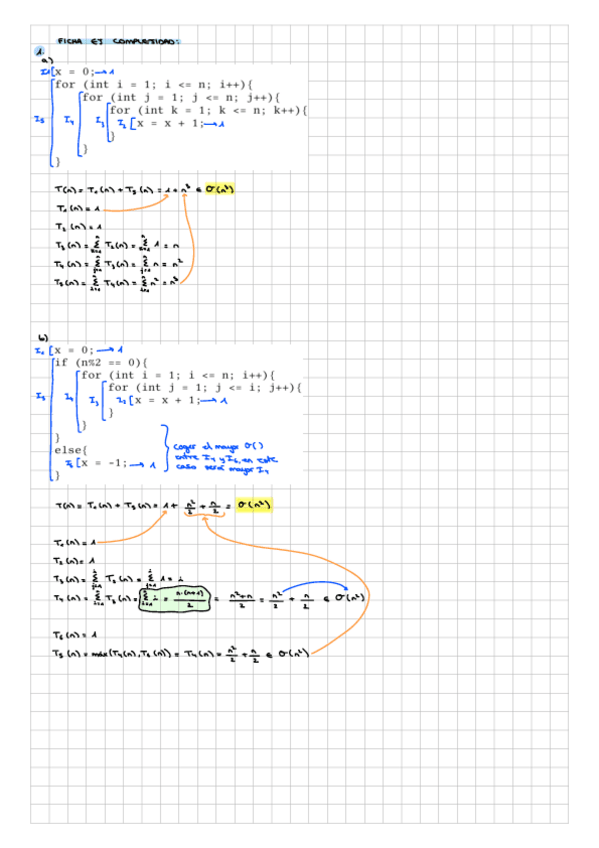 FICHA EJ COMPLEJIDAD:
1.
a)
I1[x = 0; → 1
for (int i = 1; i <= n; i++){
for (int j = 1; j <= n; j++){
for (int k = 1; k <= n; k++){
I5 I4 I3 I2[x = x + 1; → 1
}
}
}
T(n) = T1(n) + T5(n) = 1 + n³ ∈ O(n³)
T1(n) = 1
T2(n) = 1
T3(n) = Σ T2(n) = Σ 1 = n
T4(n) = Σ T3(n) = Σ n = n²
T5(n) = Σ T4(n) = Σ n² = n³
b)
I1[x = 0; → 1
if (n%2 == 0){
for (int i = 1; i <= n; i++){
for (int j = 1; j <= i; j++){
I5 I4 I3 I2[x = x + 1; → 1
}
}
}
else{
I6[x = -1; → 1
}
coger el mayor O()
entre I4 y I6, en este
caso será mayor I4
T(n) = T1(n) + T5(n) = 1 + n²/2 + n/2 = O(n²)
T1(n) = 1
T2(n) = 1
T3(n) = Σ T2(n) = Σ 1 = i
T4(n) = Σ T3(n) = Σ i = n·(n+1)/2 = n²+n/2 = n²/2 + n/2 ∈ O(n²)
T6(n) = 1
T5(n) = máx(T4(n), T6(n)) = T4(n) = n²/2 + n/2 ∈ O(n²)